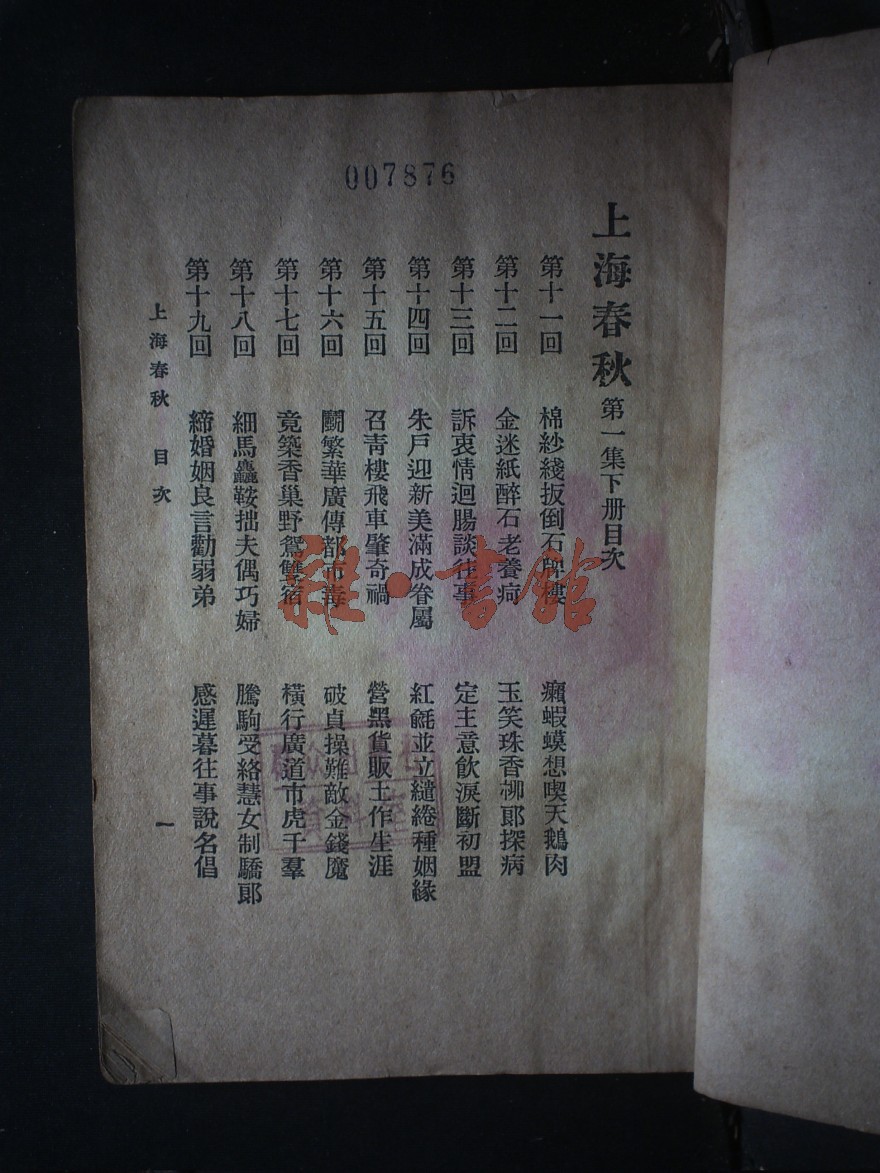 007876
上海春秋 第一集下册目次
第十一回 棉紗綫扳倒石牌樓 癩蝦蟆想喫天鵝肉
第十二回 金迷紙醉石老養疴 玉笑珠香柳郞探病
第十三回 訴衷情迴腸談往事 定主意飮淚斷初盟
第十四回 朱戶迎新美滿成眷屬 紅氍並立繾綣種姻緣
第十五回 召靑樓飛車肇奇禍 營黑貨販土作生涯
第十六回 鬭繁華廣傳都市毒 破貞操難敵金錢魔
第十七回 竟築香巢野鴛雙宿 橫行廣道市虎千羣
第十八回 細馬馱鞍拙夫偶巧婦 騰駒受絡慧女制驕郞
第十九回 締婚姻良言勸弱弟 感遲暮往事說名倡
上海春秋 目次
一
雜·書館
資料室